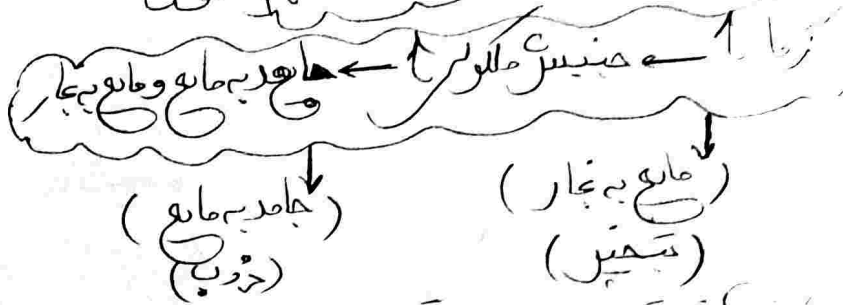 گرما ↑ ← جنبش ملکولی ↑ ← جامد به مایع و مایع به بخار
(مایع به بخار) (جامد به مایع)
(تبخیر) (ذوب)